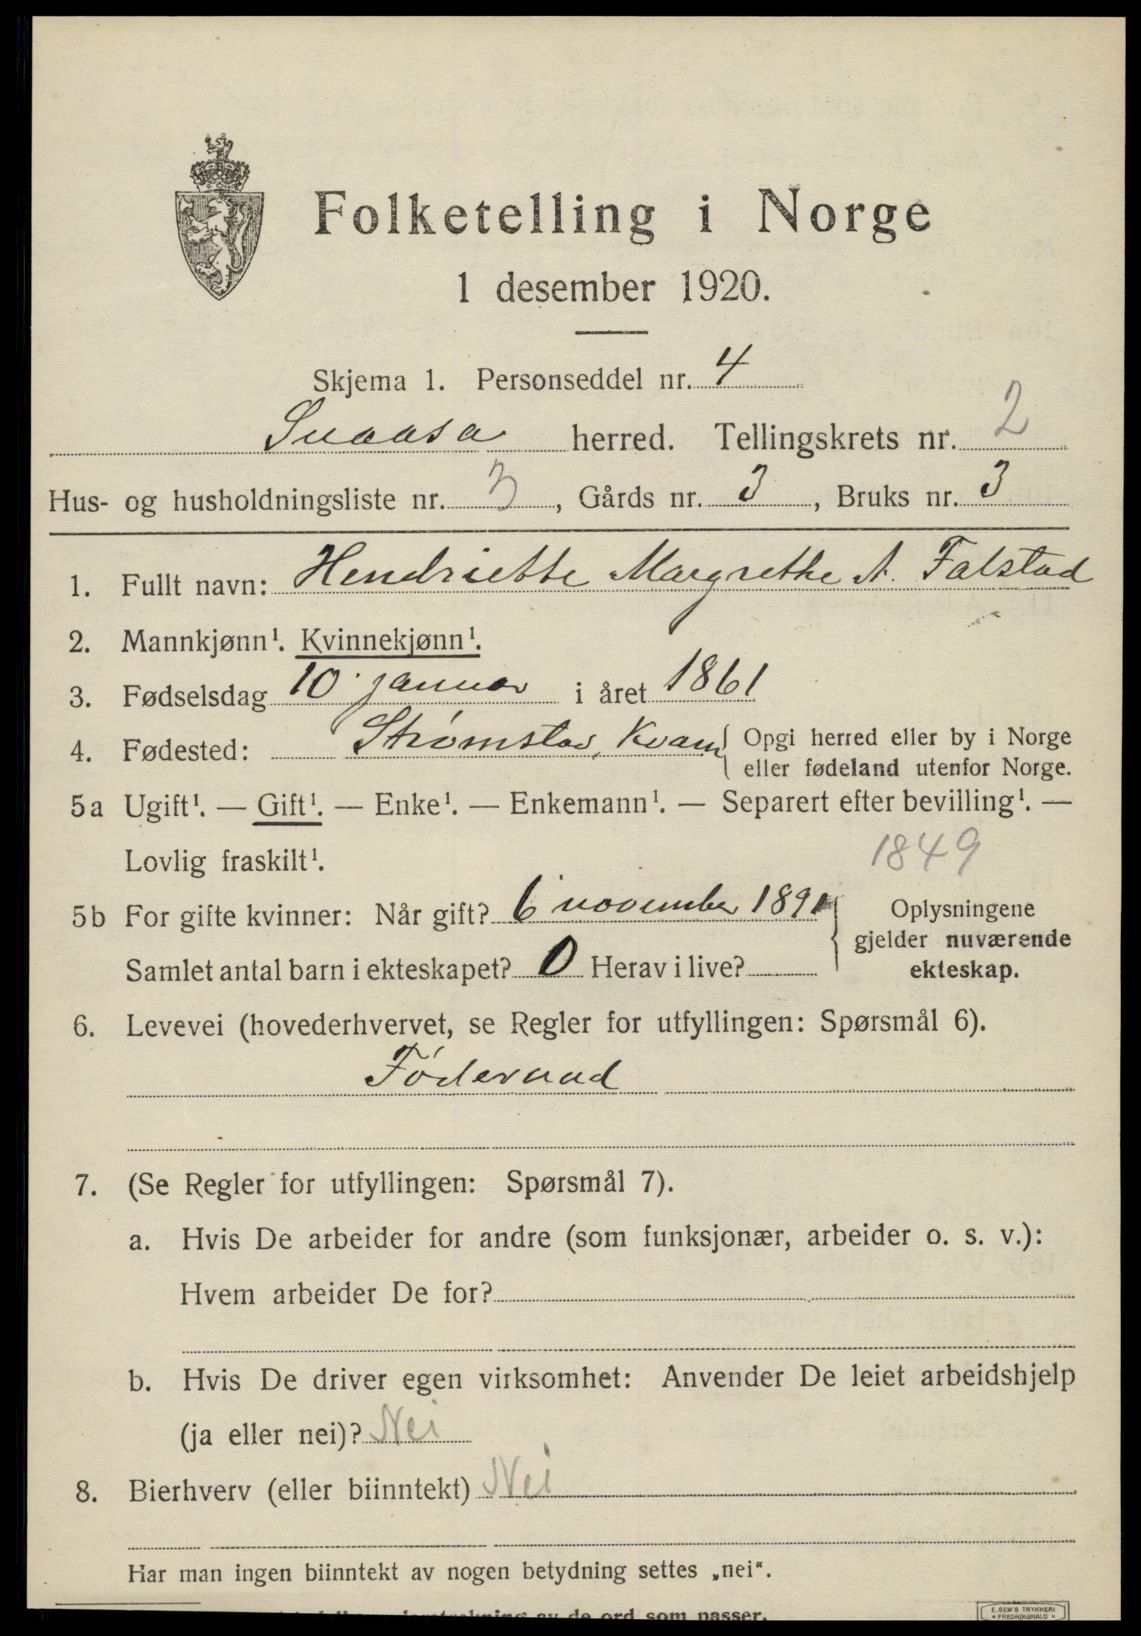 Folketelling i Norge
1 desember 1920.
Skjema 1. Personseddel nr. 4
Snaasa herred. Tellingskrets nr. 2
Hus- og husholdningsliste nr. 3, Gårds nr. 3, Bruks nr. 3
1. Fullt navn: Hendriette Margrethe A. Falstad
2. Mannkjønn¹. Kvinnekjønn¹.
3. Fødselsdag 10 januar i året 1861
4. Fødested: Strømstad, Kvam Opgi herred eller by i Norge
eller fødeland utenfor Norge.
5a Ugift¹. — Gift¹. — Enke¹. — Enkemann¹. — Separert efter bevilling¹. —
Lovlig fraskilt¹. 1849
5b For gifte kvinner: Når gift? 6 november 1891 Oplysningene
gjelder nuværende
Samlet antal barn i ekteskapet? 0 Herav i live? ekteskap.
6. Levevei (hovederhvervet, se Regler for utfyllingen: Spørsmål 6).
Føderaad
7. (Se Regler for utfyllingen: Spørsmål 7).
a. Hvis De arbeider for andre (som funksjonær, arbeider o. s. v.):
Hvem arbeider De for?
b. Hvis De driver egen virksomhet: Anvender De leiet arbeidshjelp
(ja eller nei)? Nei
8. Bierhverv (eller biinntekt) Nei
Har man ingen biinntekt av nogen betydning settes „nei“.
av de ord som passer.
E. SEM'S TRYKKERI
FREDRIKSHALD